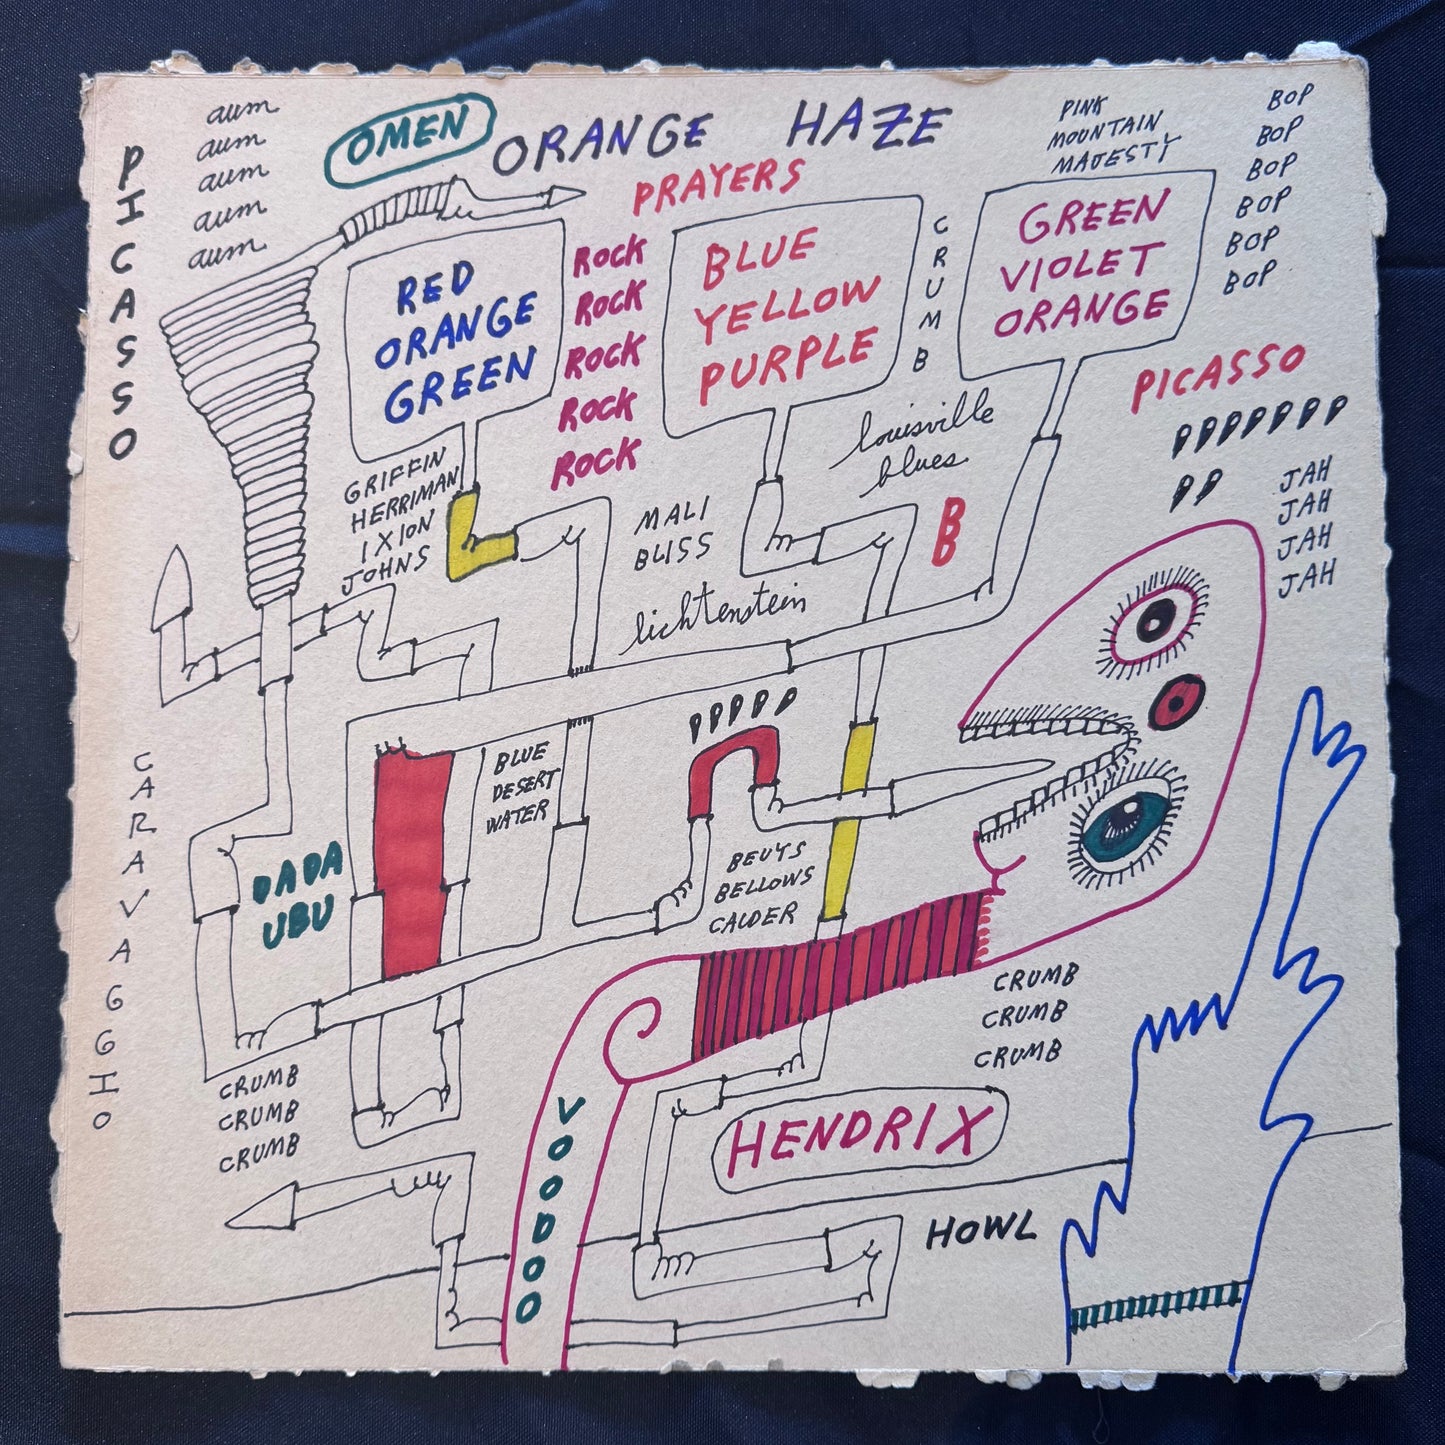 aum
aum
aum
aum
aum
OMEN
ORANGE HAZE
PRAYERS
PINK
MOUNTAIN
MAJESTY
BOP
BOP
BOP
BOP
BOP
BOP
PICASSO
RED
ORANGE
GREEN
ROCK
ROCK
ROCK
ROCK
ROCK
BLUE
YELLOW
PURPLE
CRUMB
GREEN
VIOLET
ORANGE
PICASSO
PPPPPPP
PP
JAH
JAH
JAH
JAH
GRIFFIN
HERRIMAN
IXION
JOHNS
MALI
BLISS
lichtenstein
louisville
blues
B
B
PPPPP
CARAVAGGIO
DADA
UBU
BLUE
DESERT
WATER
BEUYS
BELLOWS
CALDER
CRUMB
CRUMB
CRUMB
CRUMB
CRUMB
CRUMB
VOODOO
HENDRIX
HOWL